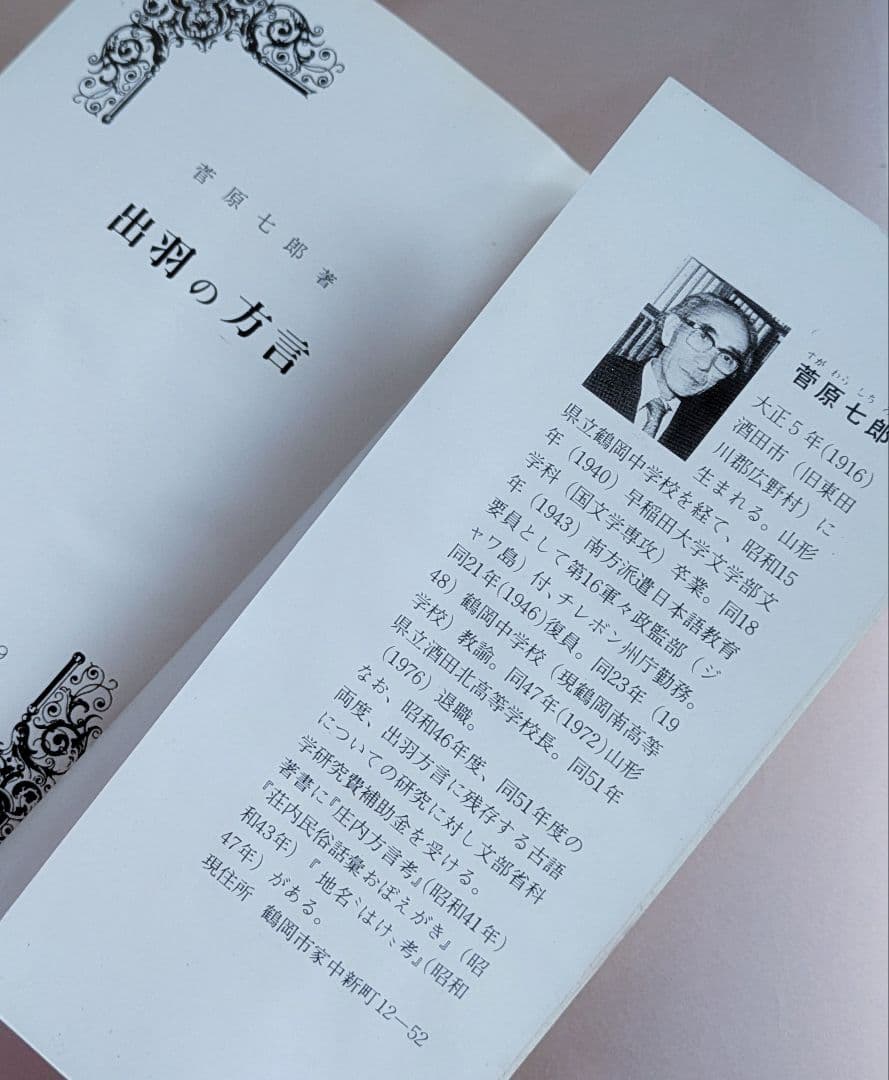 菅原七郎著
出羽の方言
9
すがわらしち
菅原七郎
大正5年(1916)
酒田市(旧東田
川郡広野村)に
生まれる。山形
県立鶴岡中学校を経て、昭和15
年(1940)早稲田大学文学部文
学科(国文学専攻)卒業。同18
年(1943)南方派遣日本語教育
要員として第16軍々政監部(ジ
ャワ島)付、チレボン州庁勤務。
同21年(1946)復員。同23年(19
48)鶴岡中学校(現鶴岡南高等
学校)教諭。同47年(1972)山形
県立酒田北高等学校長。同51年
(1976)退職。
なお、昭和46年度、同51年度の
両度、出羽方言に残存する古語
についての研究に対し文部省科
学研究費補助金を受ける。
著書に『庄内方言考』(昭和41年)
『荘内民俗話彙おぼえがき』(昭
和43年)『地名〝はけ〟考』(昭和
47年)がある。
現住所 鶴岡市家中新町12—52